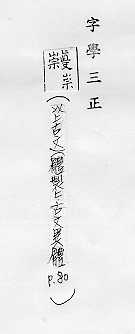 字學三正
崇
上古文(體製上古文異體 p.80)